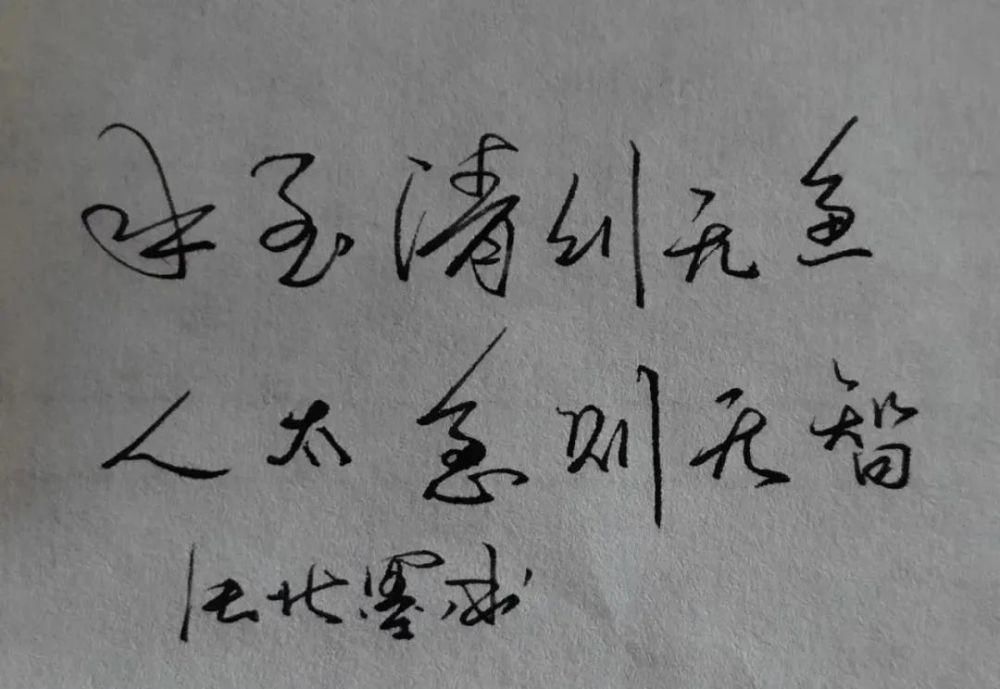 水至清则无鱼
人太急则无智
墨